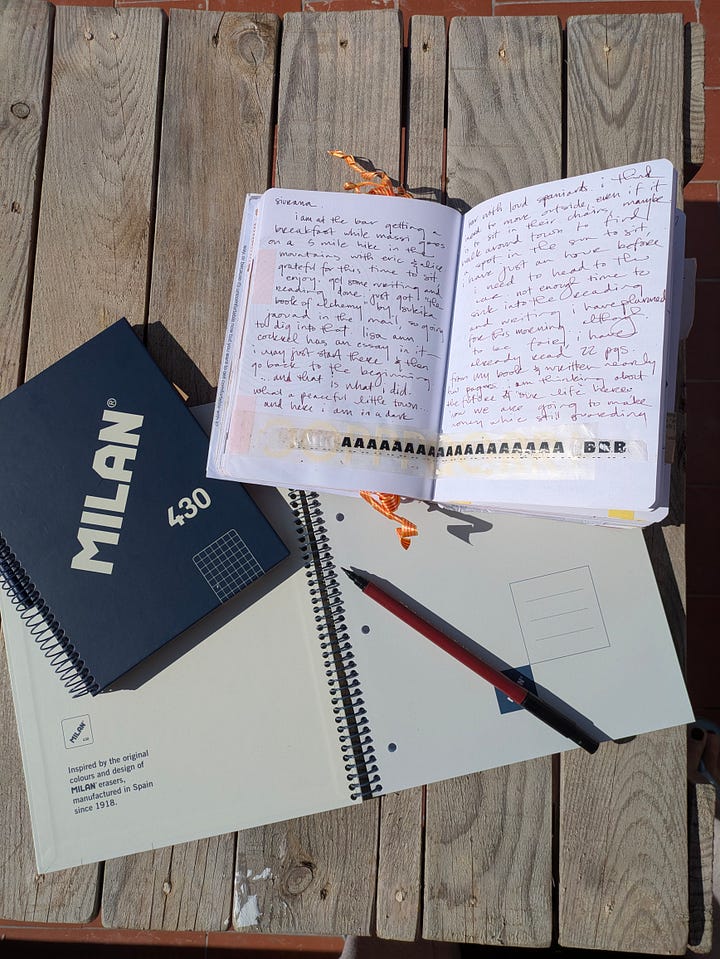 siurana.
i am at the bar getting a
breakfast while massi goes
on a 5 mile hike in the
mountains with eric & alice
grateful for this time to sit,
enjoy, get some writing and
reading done. just got "the
book of alchemy" by suleika
jaouad in the mail, so going
to dig into that. lisa ann
cockrel has an essay in it —
i may just start there & then
go back to the beginning.
...and that is what i did.
what a peaceful little town...
and here i am in a dark
bar with loud spaniards. i think
need to move outside, even if it
to sit in their chairs. maybe
walk around town to find
a spot in the sun to sit,
have just an hour before
need to head to the
not enough time to
sink into the reading
and writing i have planned
for this morning. although
to be fair, i have
already read 22 pgs
from my book & written nearly
pages. i am thinking about
the future & our life here
how we are going to make
money while still
AAAAAAAAAAAAAAAAAAA BBB
MILAN®
430
MILAN
Inspired by the original
colours and design of
MILAN® erasers,
manufactured in Spain
since 1918.